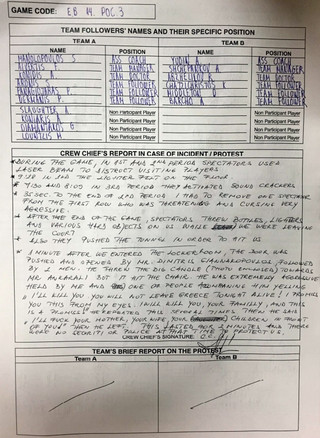 GAME CODE: EB 14. POC.3
TEAM FOLLOWERS' NAMES AND THEIR SPECIFIC POSITION
TEAM A TEAM B
NAME POSITION NAME POSITION
MANOLOPOULOS S ASS COACH YUDIN A ASS COACH
ALBERTIS F. TEAM MANAGER TEAM MANAGER
TEAM DOCTOR TEAM DOCTOR
TEAM FOLLOWER TEAM FOLLOWER
TEAM FOLLOWER TEAM FOLLOWER
P. TEAM FOLLOWER A TEAM FOLLOWER
SLAUGHTER A Non Participant Player Non Participant Player
KONIARIS A Non Participant Player Non Participant Player
DIAMANTAKOS G Non Participant Player Non Participant Player
LOUNTZIS M Non Participant Player Non Participant Player
CREW CHIEF'S REPORT IN CASE OF INCIDENT / PROTEST
DURING THE GAME, IN 1ST AND 2ND PERIOD SPECTATORS USED
LASER BEAM TO VISITING PLAYERS
9:48 IN 2ND THE LIGHTER FELT ON THE FLOOR
4:30 AND IN 3RD PERIOD THEY ACTIVATED SOUND CRACKERS
SEC TO THE END OF 3RD PERIOD I HAD TO REMOVE ONE SPECTATOR
FROM THE FIRST ROW WHO WAS THREATENING AND CURSING VERY
AGRESSIVE.
AFTER THE END OF THE GAME, SPECTATORS THREW BOTTLES, LIGHTERS
AND VARIOUS HARD OBJECTS ON US WHILE WE WERE LEAVING
THE COURT
ALSO THEY PUSHED THE TUNNEL IN ORDER TO HIT US
1 MINUTE AFTER WE ENTERED THE LOCKERROOM, THE DOOR WAS
PUSHED AND OPENED BY MR. DIMITRIS GIANNAKOPOULOS, FOLLOWED
BY 2 MEN. HE THREW THE BIG CANDLE TOWARDS
MR. BUT IT HIT THE CHAIR. HE WAS EXTREMELY AGRESSIVE
HELD BY ME AND ONE OF PEOPLE HIM YELLING
I'LL KILL YOU YOU WILL NOT LEAVE GREECE TONIGHT ALIVE! I PROMISE
YOU THIS FROM MY EYES! I WILL KILL YOU, YOUR FAMILY, AND THIS
IS A PROMISE HE REPEATED THIS SEVERAL TIMES THEN HE SAID
I'LL FUCK YOUR MOTHER, YOUR WIFE, YOUR CHILDREN IN FRONT
OF YOU" THEN HE LEFT. THIS LASTED FOR 2 MINUTES AND THERE
WERE NO SECURITY OR POLICE AT THAT TIME TO PROTECT US.
CREW CHIEF'S SIGNATURE:
TEAM'S BRIEF REPORT ON THE PROTEST
Team A Team B